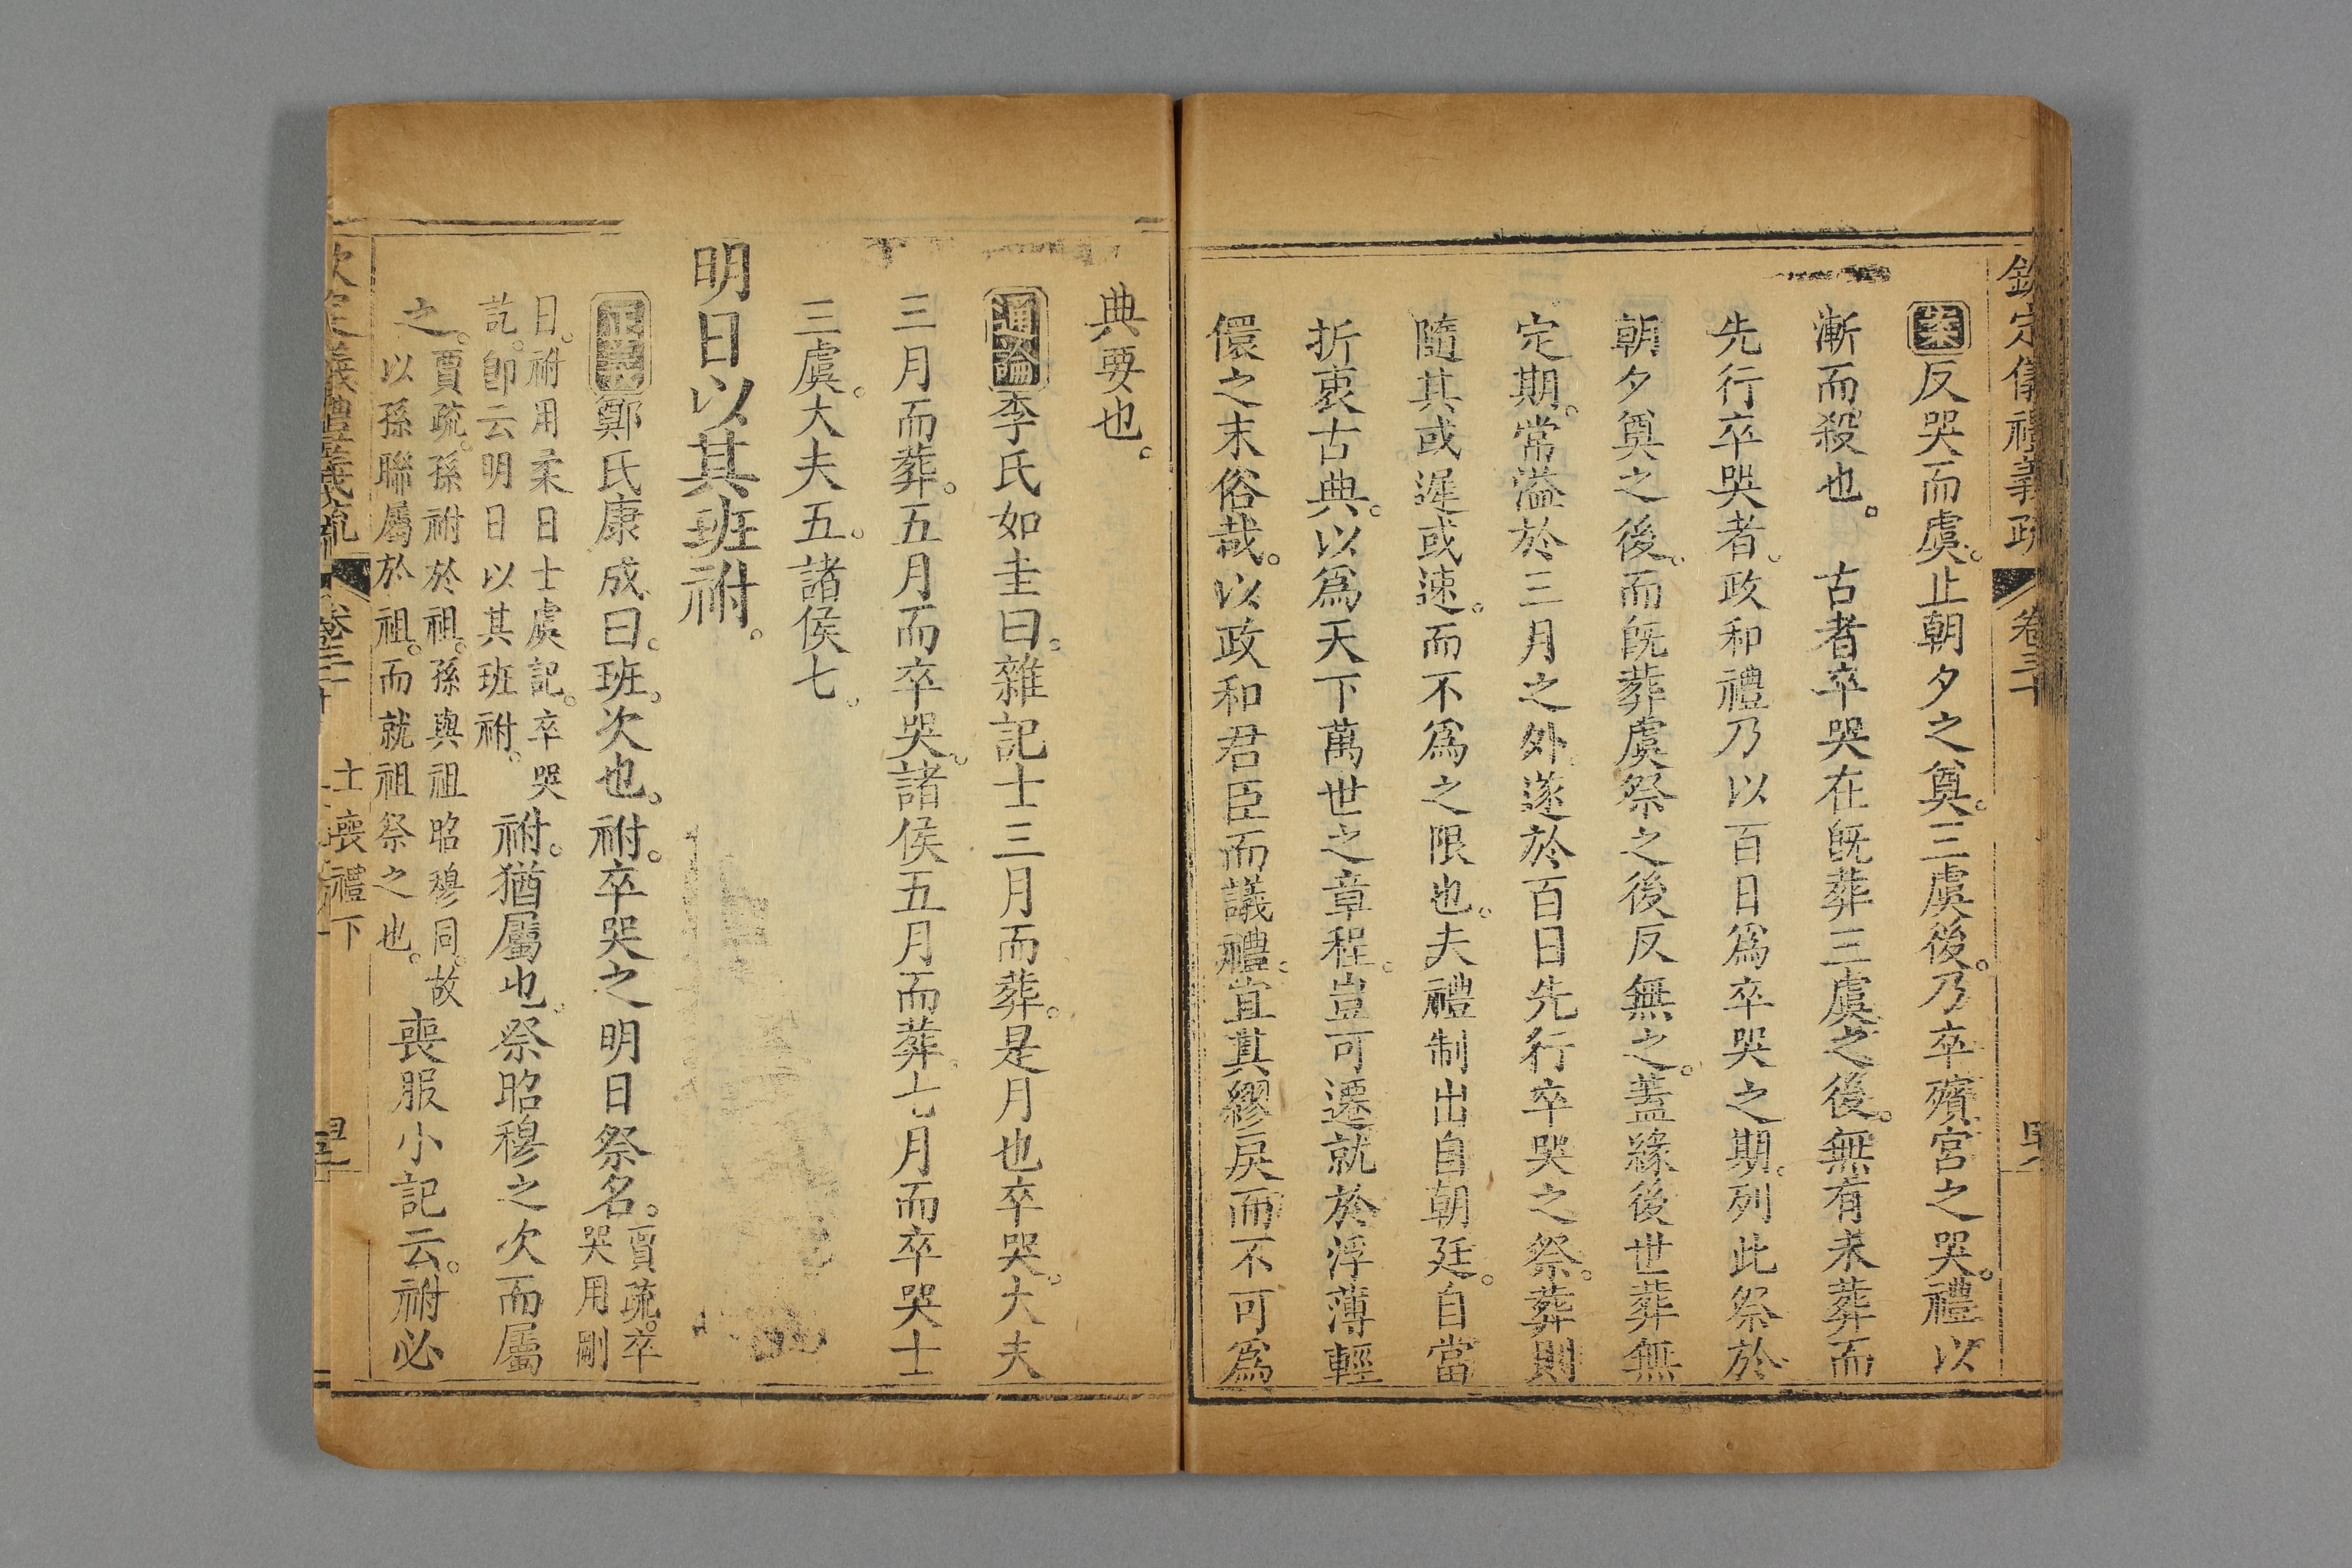 欽定儀禮義疏　卷三十
案反哭而虞。止朝夕之奠。三虞後。乃卒殯宮之哭。禮以
漸而殺也。　古者卒哭在旣葬三虞之後。無有未葬而
先行卒哭者。政和禮乃以百日爲卒哭之期。列此祭於
朝夕奠之後。而旣葬虞祭之後反無之。蓋緣後世葬無
定期。常溢於三月之外。遂於百日先行卒哭之祭。葬則
隨其或遲或速。而不爲之限也。夫禮制出自朝廷。自當
折衷古典。以爲天下萬世之章程。豈可遷就於浮薄輕
儇之末俗哉。以政和君臣而議禮。宜其繆戾而不可爲
典要也。
通論李氏如圭曰。雜記士三月而葬。是月也卒哭。大夫
三月而葬。五月而卒哭。諸侯五月而葬。七月而卒哭士
三虞。大夫五。諸侯七。
明日以其班祔。
正義鄭氏康成曰。班。次也。祔。卒哭之明日祭名。賈疏。卒哭用剛
日。祔用柔日士虞記。卒哭訖。卽云明日以其班祔。祔。猶屬也。祭昭穆之次而屬
之。賈疏。孫祔於祖。孫與祖昭穆同。故以孫聯屬於祖。而就祖祭之也。喪服小記云。祔必
欽定儀禮義疏　卷三十　士喪禮下